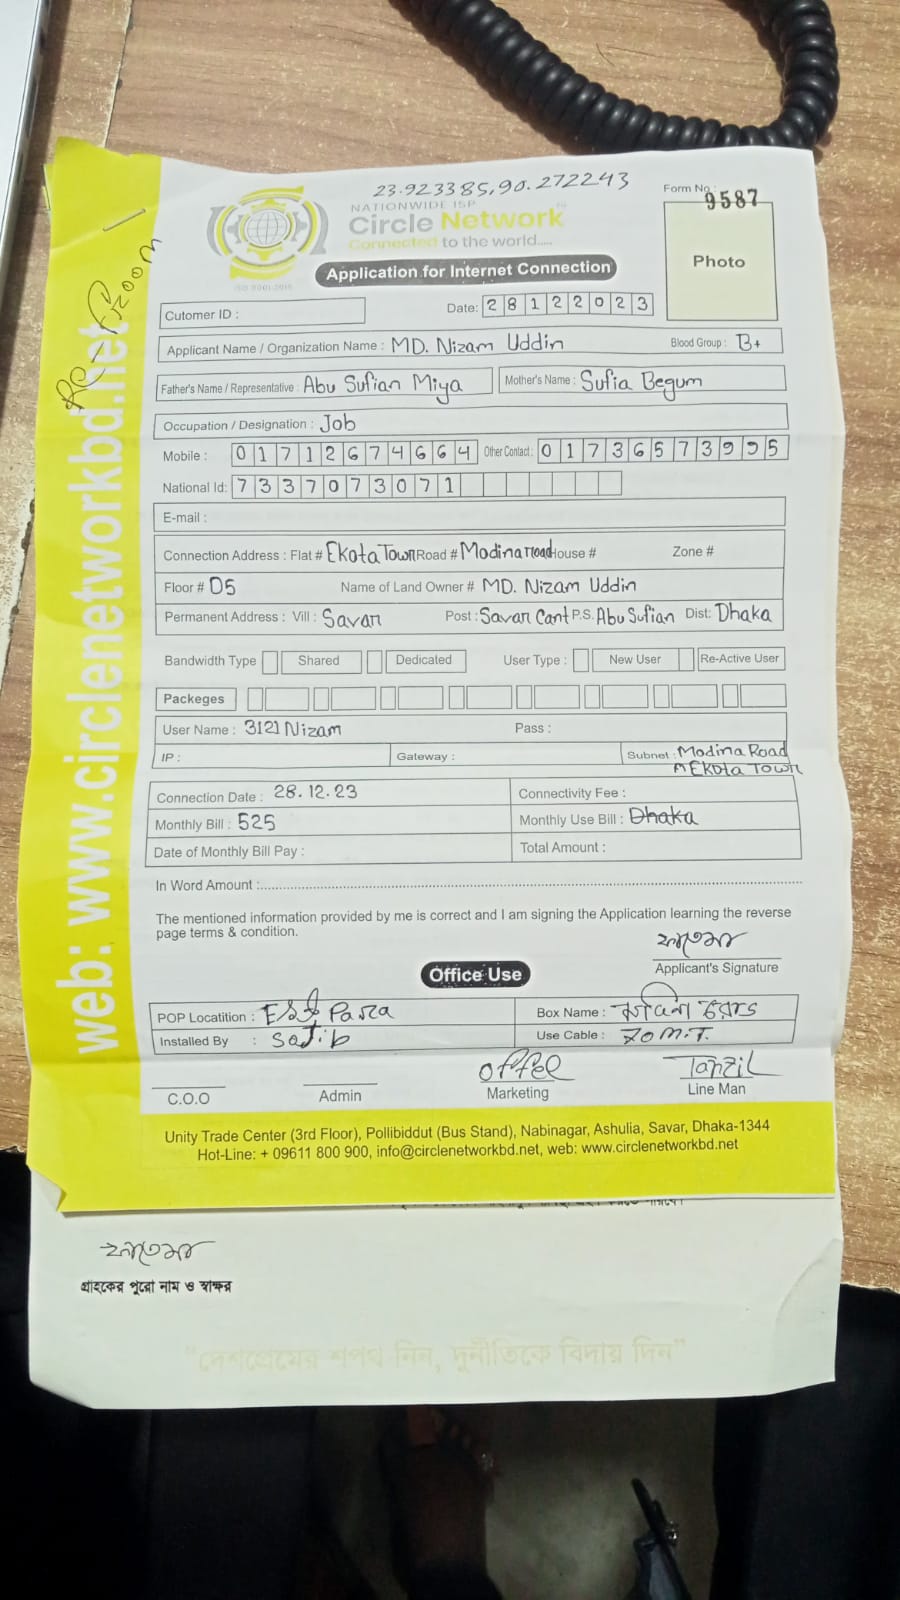 23.923385,90.272243
NATIONWIDE ISP
Circle Network
Connected to the world.....
ISO 9001:2015
Form No :
9587
Photo
Application for Internet Connection
Cutomer ID :
Date: 28122023
Applicant Name / Organization Name : MD. Nizam Uddin Blood Group : B+
Father's Name / Representative : Abu Sufian Miya Mother's Name : Sufia Begum
Occupation / Designation : Job
Mobile : 01712674664 Other Contact : 01736573995
National Id: 7337073071
E-mail :
Connection Address : Flat # Ekota Town Road # Modina Road House # Zone #
Floor # 05 Name of Land Owner # MD. Nizam Uddin
Permanent Address : Vill : Savar Post : Savar Cant P.S. Abu Sufian Dist: Dhaka
Bandwidth Type Shared Dedicated User Type : New User Re-Active User
Packeges
User Name : 3121 Nizam Pass :
IP : Gateway : Subnet : Modina Road
Ekota Town
Connection Date : 28.12.23 Connectivity Fee :
Monthly Bill : 525 Monthly Use Bill : Dhaka
Date of Monthly Bill Pay : Total Amount :
In Word Amount :
The mentioned information provided by me is correct and I am signing the Application learning the reverse
page terms & condition.
ফাতেমা
Applicant's Signature
Office Use
POP Locatition : Para Box Name :
Installed By : Sajib Use Cable : 70 M.T.
Tanzil
C.O.O Admin Marketing Line Man
Unity Trade Center (3rd Floor), Pollibiddut (Bus Stand), Nabinagar, Ashulia, Savar, Dhaka-1344
Hot-Line: + 09611 800 900, info@circlenetworkbd.net, web: www.circlenetworkbd.net
web: www.circlenetworkbd.net
ফাতেমা
গ্রাহকের পুরো নাম ও স্বাক্ষর
“দেশপ্রেমের শপথ নিন, দুর্নীতিকে বিদায় দিন”